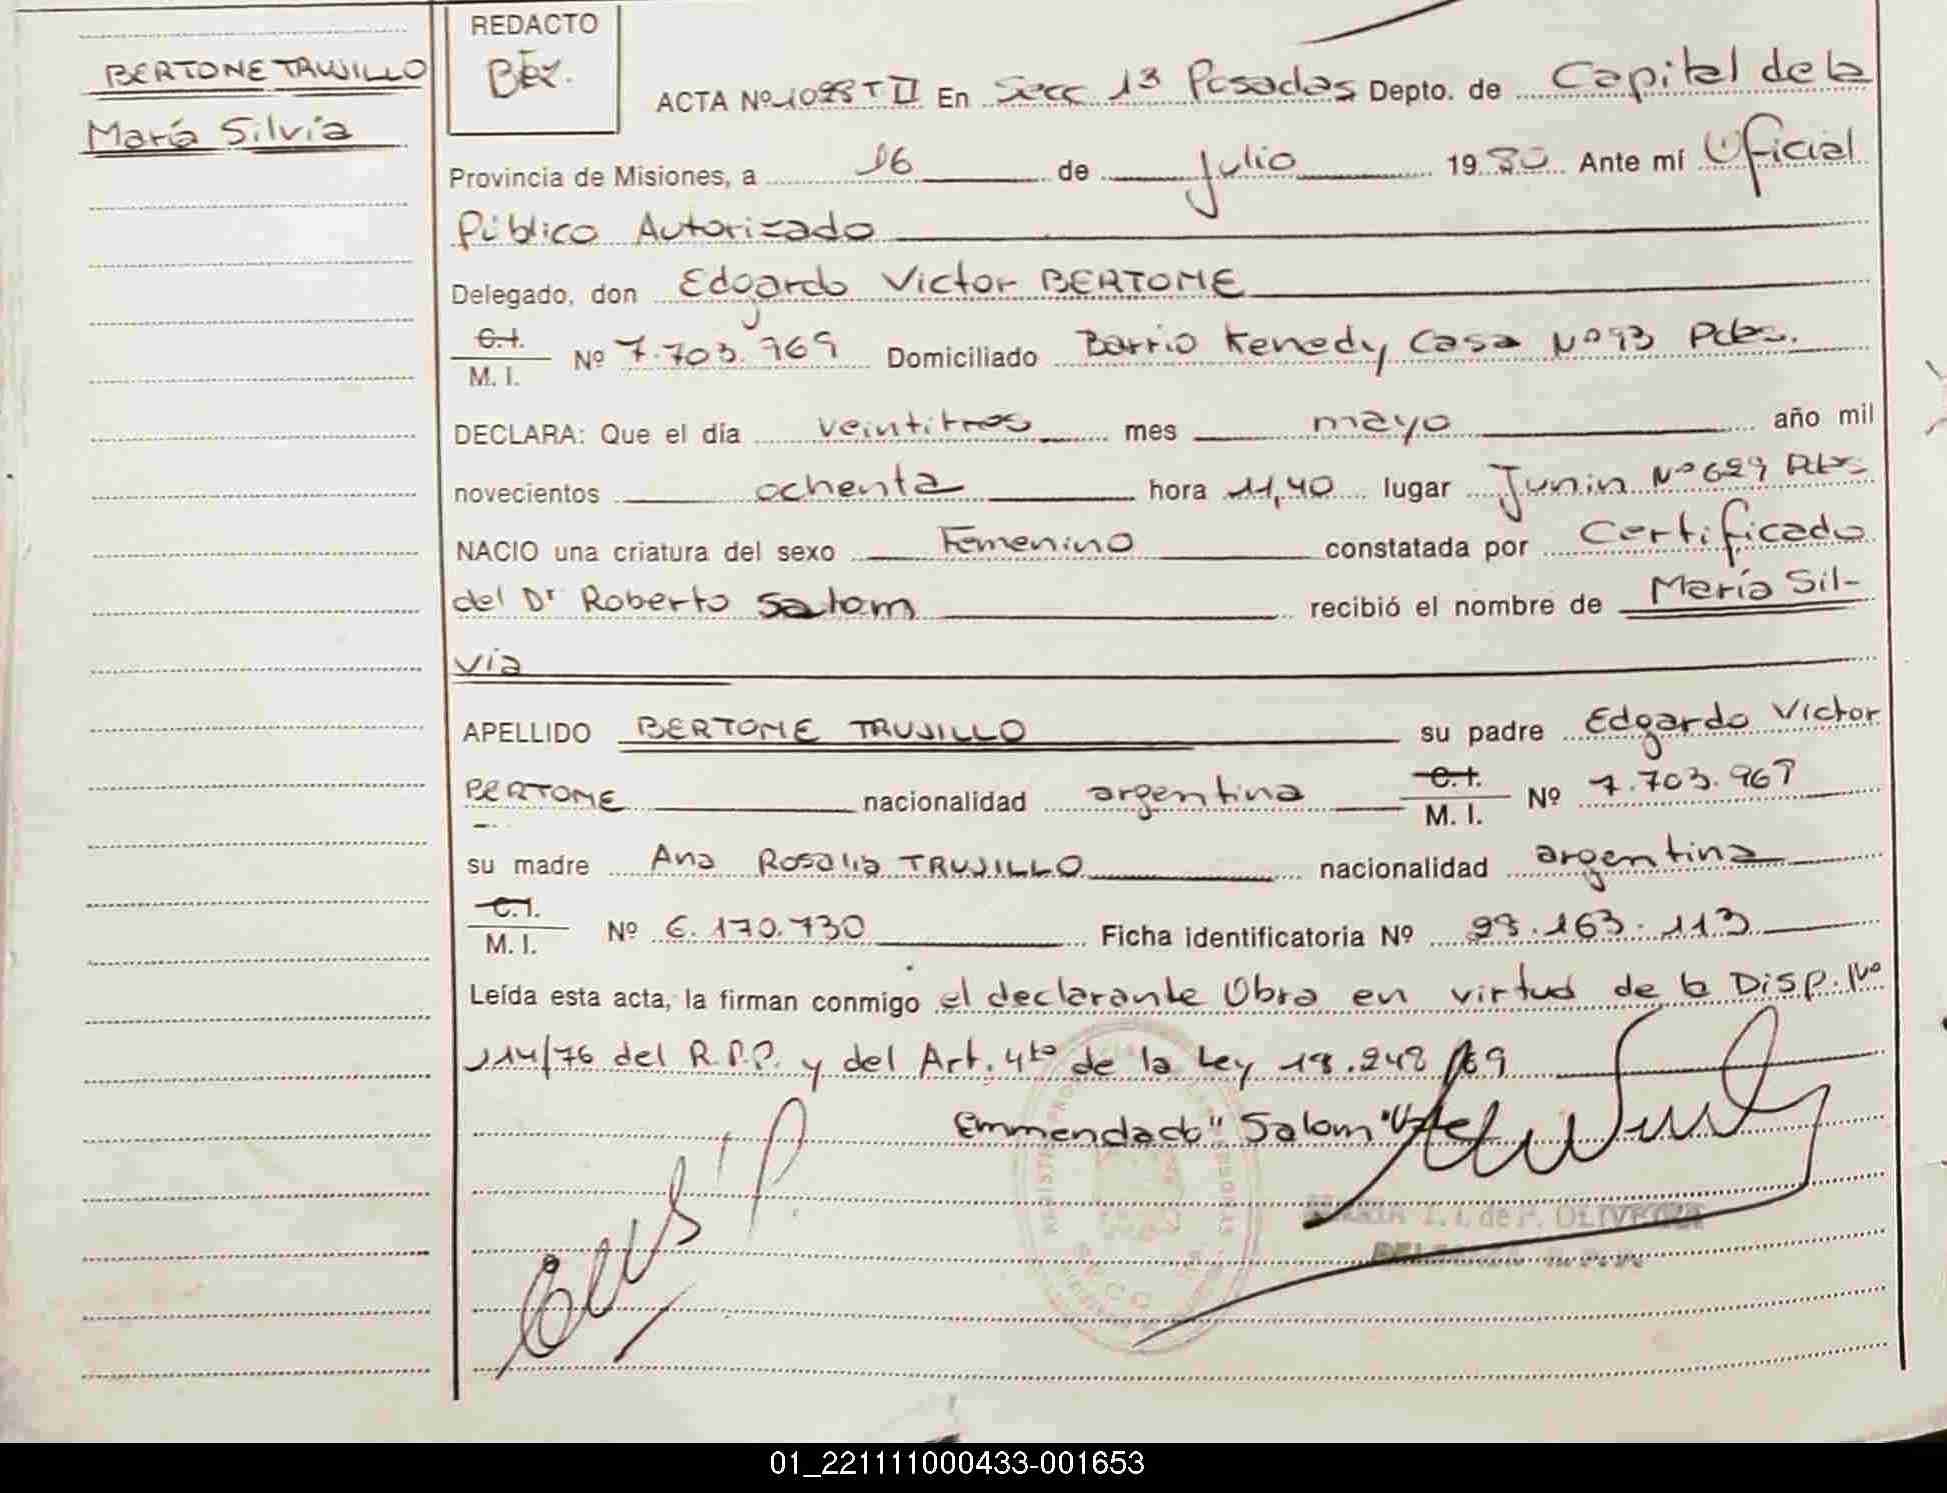 BERTONE TRUJILLO
María Silvia
REDACTO
Béz.
ACTA Nº 1098 T II En Secc 1ª Posadas Depto. de Capital de la
Provincia de Misiones, a 16 de julio 1980 Ante mí Oficial
Público Autorizado
Delegado, don Edgardo Victor BERTONE
C.I.
M. I. Nº 7.703.969 Domiciliado Barrio Kenedy Casa Nº 93 Pdas.
DECLARA: Que el día veintitres mes mayo año mil
novecientos ochenta hora 11,40 lugar Junin Nº 629 Pdas
NACIO una criatura del sexo Femenino constatada por Certificado
del Dr Roberto Salom recibió el nombre de María Sil-
via
APELLIDO BERTONE TRUJILLO su padre Edgardo Victor
BERTONE nacionalidad argentina C.I. M. I. Nº 7.703.969
su madre Ana Rosalia TRUJILLO nacionalidad argentina
C.I.
M. I. Nº 6.170.730 Ficha identificatoria Nº 28.163.113
Leída esta acta, la firman conmigo el declarante Obra en virtud de la Disp. Nº
114/76 del R.P.P. y del Art. 4to de la Ley 18.248/69
Emmendado "Salom" Vale
MARIA I. I. de P. OLIVEIRA
01_221111000433-001653